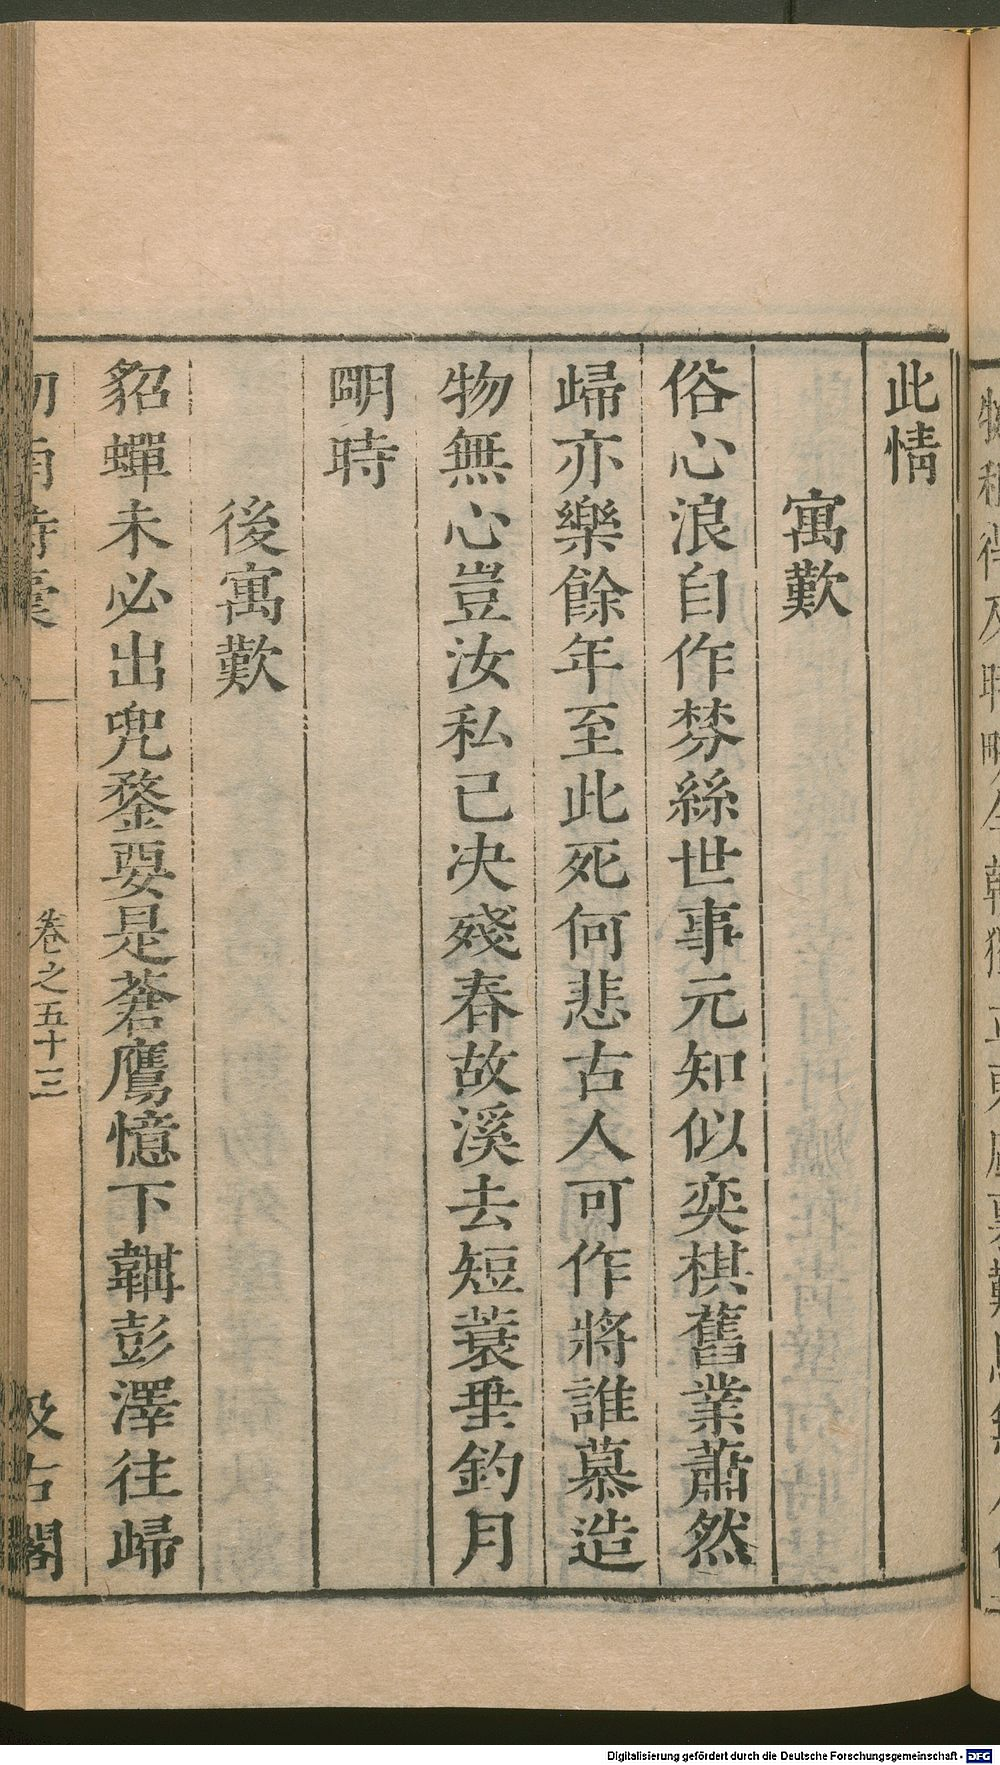 此情
寓歎
俗心浪自作棼絲世事元知似奕棋舊業蕭然
歸亦樂餘年至此死何悲古人可作將誰慕造
物無心豈汝私已决殘春故溪去短蓑垂釣月
明時
後寓歎
貂蟬未必出兜鍪要是蒼鷹憶下韝彭澤往歸
卷之五十三
汲古閣
Digitalisierung gefördert durch die Deutsche Forschungsgemeinschaft - DFG